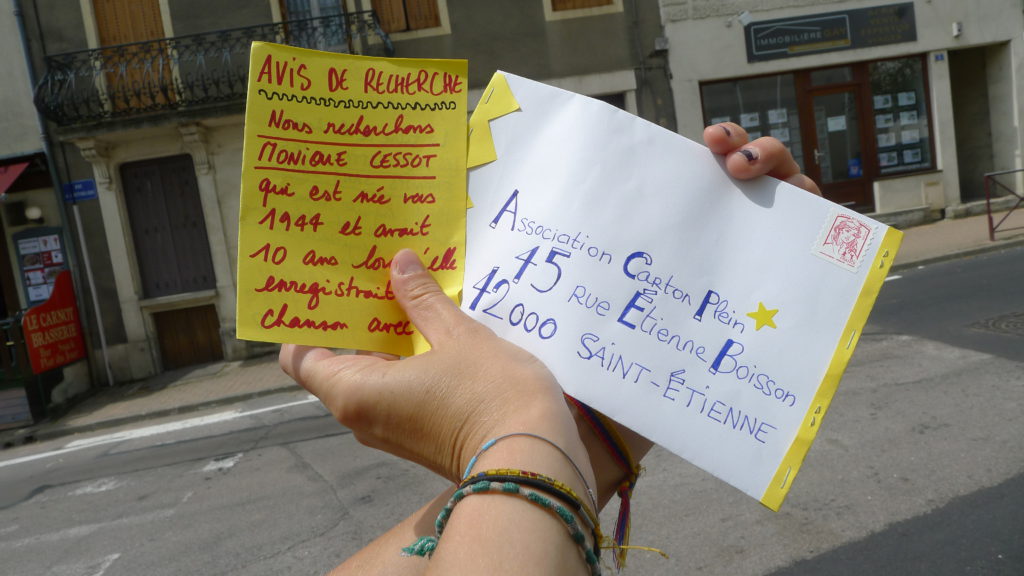 AVIS DE RECHERCHE
Nous recherchons
MONIQUE CESSOT
qui est née vas
1944 et avait
10 ans lors elle
enregistrait
chanson avec
Association Carton Plein
15 RUE Étienne Boisson
42000 SAINT-ÉTIENNE
IMMOBILIÈRE
LE CARNOT
BRASSERIE